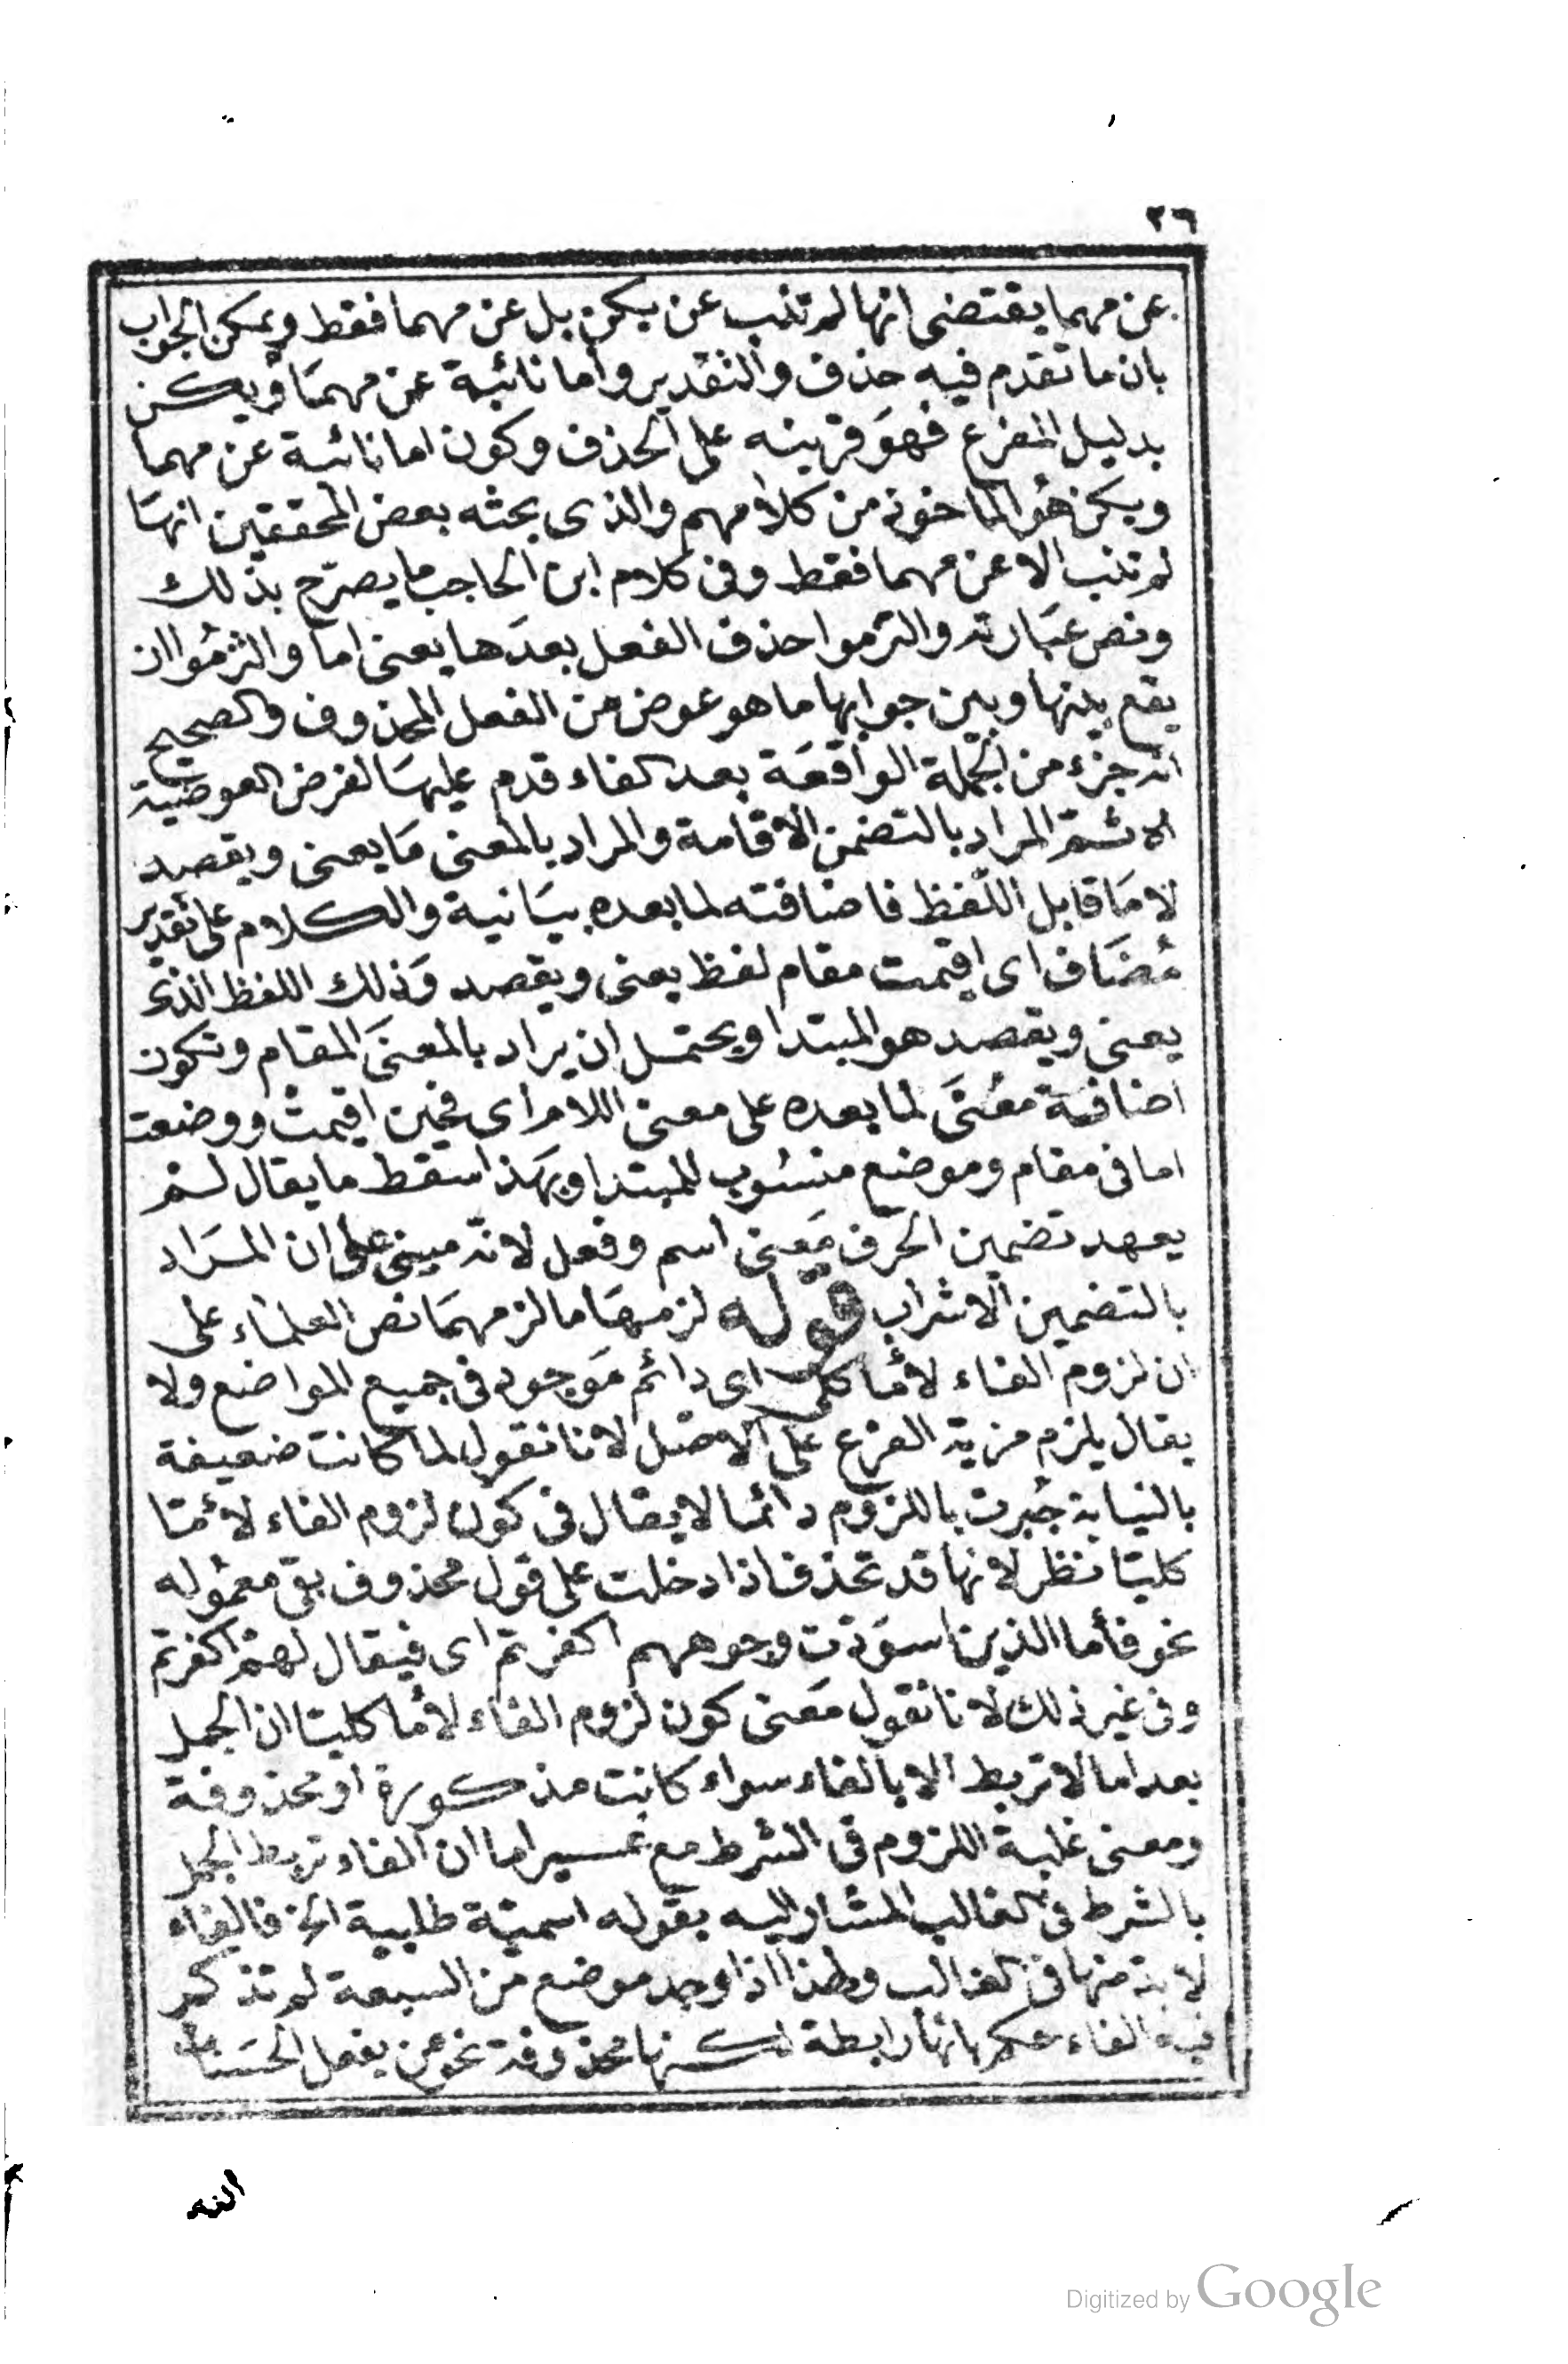 ٢٦
عن مهما يقتضى انها لم تنب عن يكن بل عن مهما فقط ويمكن الجواب
بان ما تقدم فيه حذف والتقدير واما نائبة عن مهما ويكن
بدليل المفرع فهو قرينه على الحذف وكون اما نائبة عن مهما
ويكن هو الماخوذ من كلامهم والذى بحثه بعض المحققين انها
لم تنب الا عن مهما فقط وفى كلام ابن الحاجب ما يصرح بذلك
ونص عبارته والتزموا حذف الفعل بعدها يعنى اما والتزموا ان
يقع بينها وبين جوابها ما هو عوض من الفعل المحذوف والصحيح
انه جزء من الجملة الواقعة بعد الفاء قدم عليها لغرض العوضية
اه ثم المراد بالتضمن الاقامة والمراد بالمعنى ما يعنى ويقصد
لا ما قابل اللفظ فاضافته لما بعده بيانية والكلام على تقدير
مضاف اى اقيمت مقام لفظ يعنى ويقصد وذلك اللفظ الذى
يعنى ويقصد هو المبتدا ويحتمل ان يراد بالمعنى المقام وتكون
اضافة معنى لما بعده على معنى اللام اى فحين اقيمت ووضعت
اما فى مقام وموضع منسوب للمبتدا وبهذا سقط ما يقال لم
يعهد تضمين الحرف معنى اسم وفعل لانه مبنى على ان المراد
بالتضمين الاشراب قوله لزمها ما لزم مهما نص العلماء على
ان لزوم الفاء لأما كلى اى دائم موجود فى جميع المواضع ولا
يقال يلزم مزية الفرع على الاصل لانا نقول لما كانت ضعيفة
بالنيابة جبرت باللزوم دائما لا يقال فى كون لزوم الفاء لأما
كليا نظر لانها قد تحذف اذا دخلت على قول محذوف بقى معموله
نحو فأما الذين اسودت وجوههم اكفرتم اى فيقال لهم اكفرتم
وفى غير ذلك لانا نقول معنى كون لزوم الفاء لأما كليا ان الجمل
بعد اما لا تربط الا بالفاء سواء كانت مذكورة او محذوفة
ومعنى غلبة اللزوم فى الشرط مع غير اما ان الفاء تربط الجمل
بالشرط فى الغالب المشار اليه بقوله اسمية طلبية الخ فالفاء
لا بد منها فى الغالب ولهذا اذا وجد موضع من السبعة لم تذكر
فيه الفاء حكم بانها رابطة لكنها محذوفة نحو من يفعل الحسنات
الله
Digitized by Google